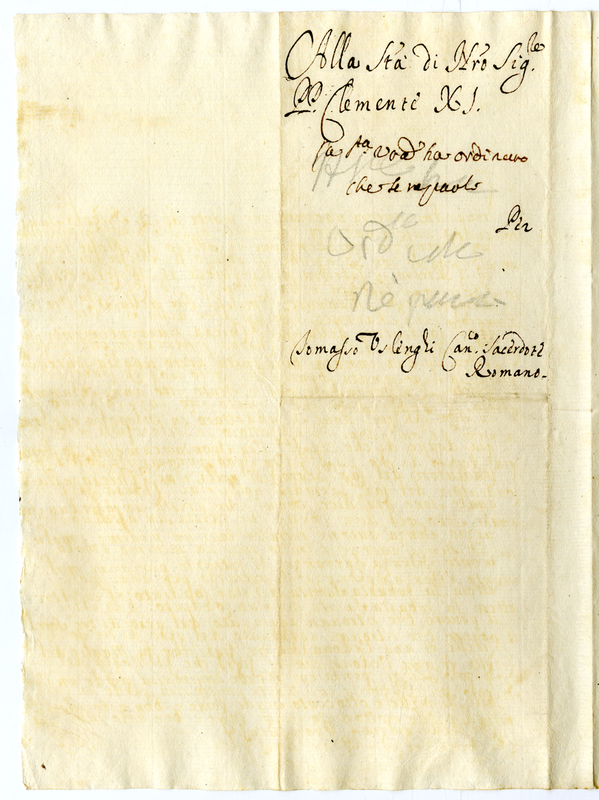 Alla Stà di Nrõ Sig.re
PP. Clemente XI.
La Stà Vrã ha ordinato
che se ne parli
Per
Ord
Tomasso Uslenghi Can.co Sacerdote
Romano.